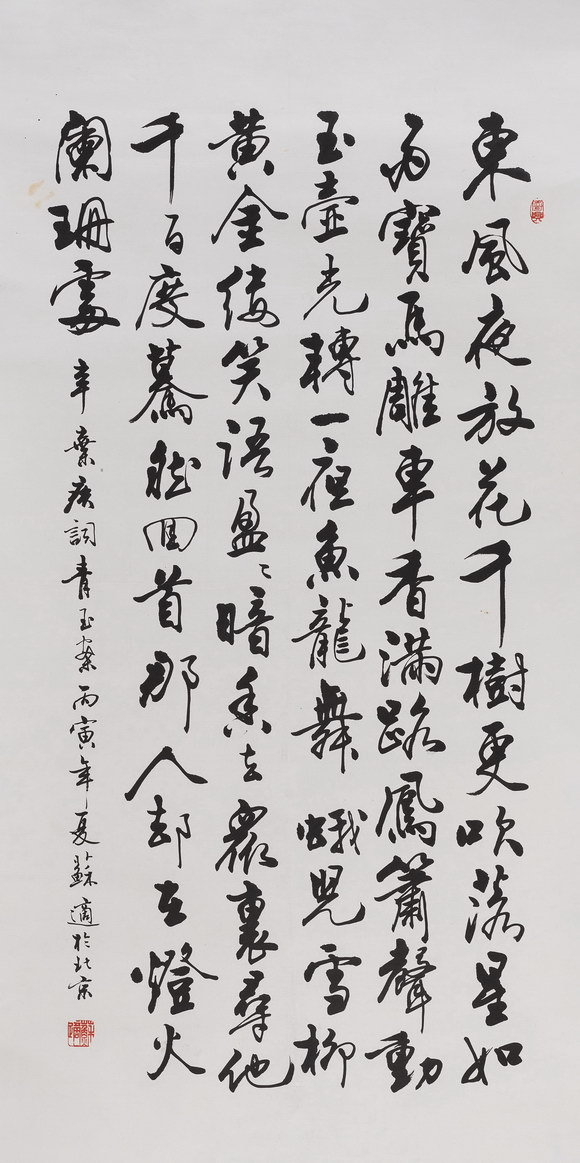 東風夜放花千樹更吹落星如
雨寶馬雕車香滿路鳳簫聲動
玉壺光轉一夜魚龍舞蛾兒雪柳
黃金縷笑語盈〻暗香去眾裏尋他
千百度驀然回首那人却在燈火
闌珊處
辛棄疾詞青玉案丙寅年夏蘇適於北京